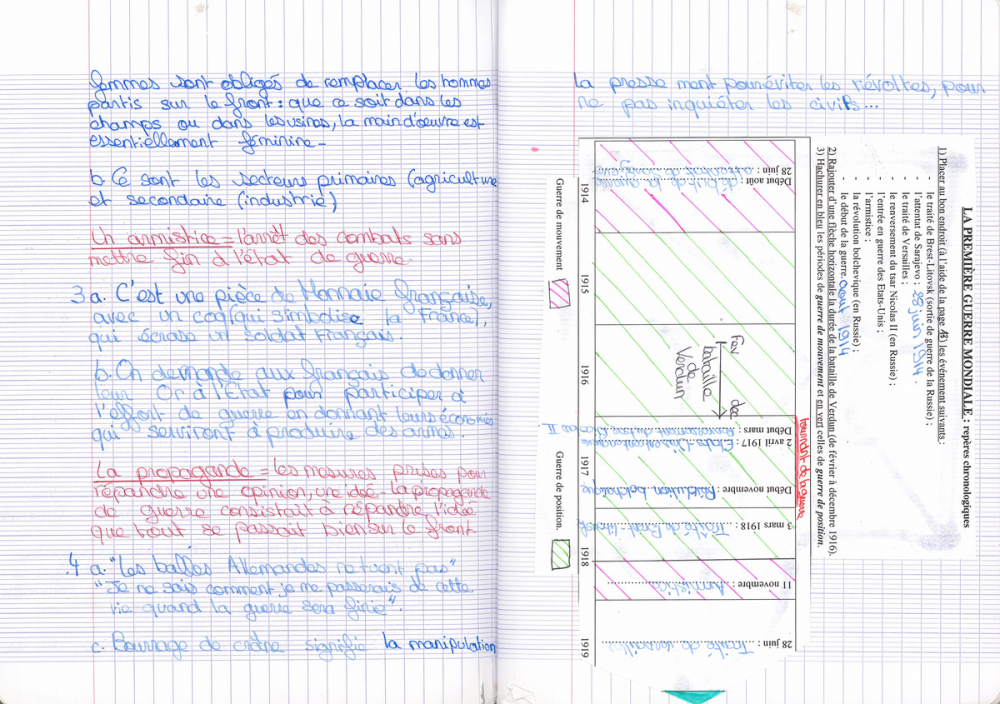 femmes sont obligés de remplacer les hommes
partis sur le front : que ce soit dans les
champs ou dans les usines, la main d'œuvre est
essentiellement féminine -
b. Ce sont les secteurs primaires (agriculture
et secondaire (industrie)
Un armistice = l'arrêt des combats sans
mettre fin à l'état de guerre.
3 a. C'est une pièce de Monnaie française,
avec un coq (qui simbolise la France),
qui écrase un soldat Français.
b. On demande aux français de donner
leur Or à l'Etat pour participer à
l'effort de guerre en donnant leurs économies
qui serviront à produire des armes.
La propagande = les mesures prises pour
répandre une opinion, une idée - la propagande
de guerre consistait à répandre l'idée
que tout se passait bien sur le front.
4 a. "Les balles Allemandes ne tuent pas"
"Je ne sais comment je me passerais de cette
vie quand la guerre sera finie".
c. Bourrage de crâne signifie la manipulation
la presse ment pour éviter les révoltes, pour
ne pas inquiéter les civils...
LA PREMIÈRE GUERRE MONDIALE : repères chronologiques
1) Placer au bon endroit (à l'aide de la page 18) les événement suivants :
- le traité de Brest-Litovsk (sortie de guerre de la Russie) ;
- l'attentat de Sarajevo ; 28 juin 1914.
- le traité de Versailles ;
- le renversement du tsar Nicolas II (en Russie) ;
- l'entrée en guerre des Etats-Unis ;
- l'armistice ;
- la révolution bolchevique (en Russie) ;
- le début de la guerre. août 1914
2) Rajouter d'une flèche horizontale la durée de la bataille de Verdun (de février à décembre 1916).
3) Hachurer en bleu les périodes de guerre de mouvement et en vert celles de guerre de position.
tournant de la guerre
28 juin : attentat de Sarajevo
Début août : début de la guerre
Fev dec
bataille
de
Verdun
Début mars : renversement du tsar Nicolas II
2 avril 1917 : Etats-Unis
Début novembre : Révolution bolchevique
3 mars 1918 : Traité de Brest-Litovsk
11 novembre : Armistice
28 juin : Traité de Versailles
1914
1915
1916
1917
1918
1919
Guerre de mouvement
Guerre de position.